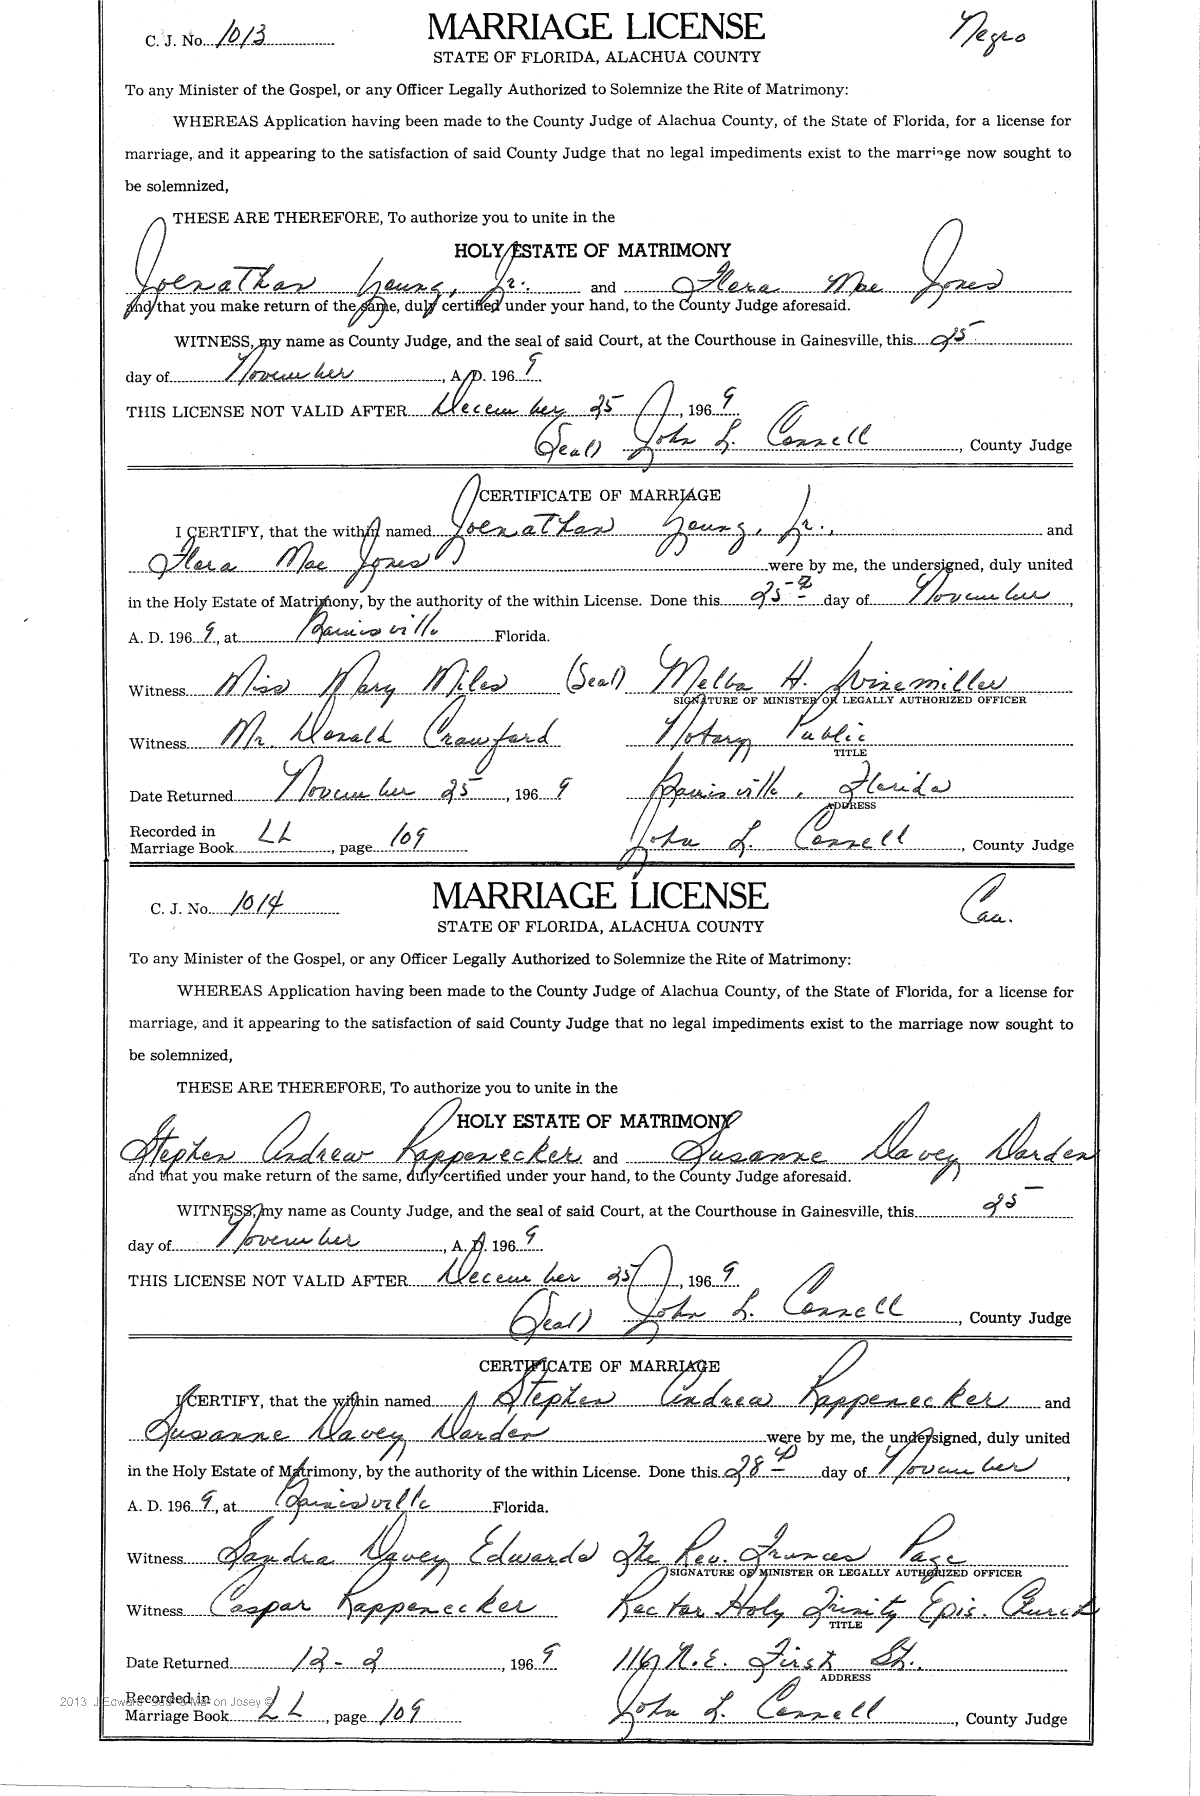 C. J. No. 1013 MARRIAGE LICENSE Negro
STATE OF FLORIDA, ALACHUA COUNTY
To any Minister of the Gospel, or any Officer Legally Authorized to Solemnize the Rite of Matrimony:
WHEREAS Application having been made to the County Judge of Alachua County, of the State of Florida, for a license for
marriage, and it appearing to the satisfaction of said County Judge that no legal impediments exist to the marriage now sought to
be solemnized,
THESE ARE THEREFORE, To authorize you to unite in the
HOLY ESTATE OF MATRIMONY
Joenathan Young, Jr. and Flora Mae Jones
and that you make return of the same, duly certified under your hand, to the County Judge aforesaid.
WITNESS, my name as County Judge, and the seal of said Court, at the Courthouse in Gainesville, this 25
day of November, A. D. 1969
THIS LICENSE NOT VALID AFTER December 25, 1969
(Seal) John L. Connell, County Judge
CERTIFICATE OF MARRIAGE
I CERTIFY, that the within named Joenathan Young, Jr., and
Flora Mae Jones were by me, the undersigned, duly united
in the Holy Estate of Matrimony, by the authority of the within License. Done this 25th day of November,
A. D. 1969, at Gainesville Florida.
Witness Miss Mary Miles (Seal) Melba H. Winemiller
SIGNATURE OF MINISTER OR LEGALLY AUTHORIZED OFFICER
Witness Mr. Donald Crawford Notary Public
TITLE
Date Returned November 25, 1969 Gainesville, Florida
ADDRESS
Recorded in
Marriage Book LL, page 109 John L. Connell, County Judge
C. J. No. 1014 MARRIAGE LICENSE Cau.
STATE OF FLORIDA, ALACHUA COUNTY
To any Minister of the Gospel, or any Officer Legally Authorized to Solemnize the Rite of Matrimony:
WHEREAS Application having been made to the County Judge of Alachua County, of the State of Florida, for a license for
marriage, and it appearing to the satisfaction of said County Judge that no legal impediments exist to the marriage now sought to
be solemnized,
THESE ARE THEREFORE, To authorize you to unite in the
HOLY ESTATE OF MATRIMONY
Stephen Andrew Rappenecker and Susanne Davey Darden
and that you make return of the same, duly certified under your hand, to the County Judge aforesaid.
WITNESS, my name as County Judge, and the seal of said Court, at the Courthouse in Gainesville, this 25
day of November, A. D. 1969
THIS LICENSE NOT VALID AFTER December 25, 1969
(Seal) John L. Connell, County Judge
CERTIFICATE OF MARRIAGE
I CERTIFY, that the within named Stephen Andrew Rappenecker and
Susanne Davey Darden were by me, the undersigned, duly united
in the Holy Estate of Matrimony, by the authority of the within License. Done this 28th day of November,
A. D. 1969, at Gainesville Florida.
Witness Sandra Davey Edwards The Rev. Frances Page
SIGNATURE OF MINISTER OR LEGALLY AUTHORIZED OFFICER
Witness Caspar Rappenecker Rector Holy Trinity Epis. Church
TITLE
Date Returned 12-2, 1969 116 N.E. First St.
ADDRESS
Recorded in
Marriage Book LL, page 109 John L. Connell, County Judge